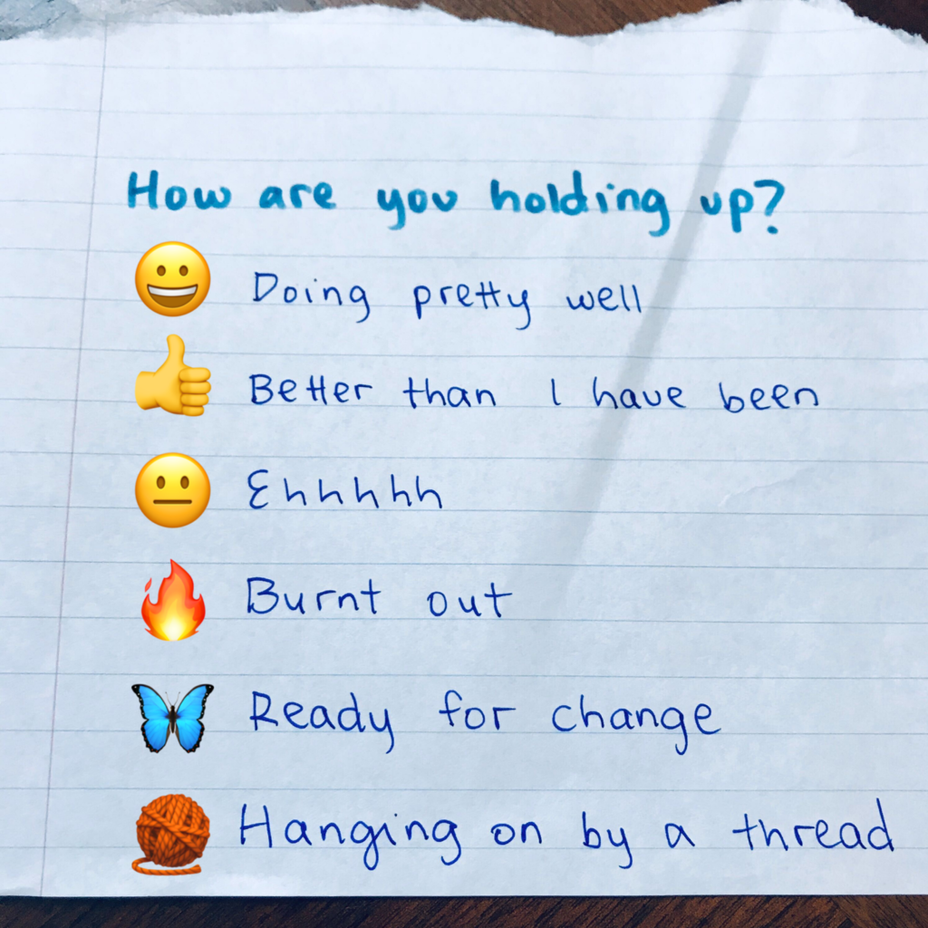 How are you holding up?
😀 Doing pretty well
👍 Better than I have been
😐 Ehhhhh
🔥 Burnt out
🦋 Ready for change
🧶 Hanging on by a thread